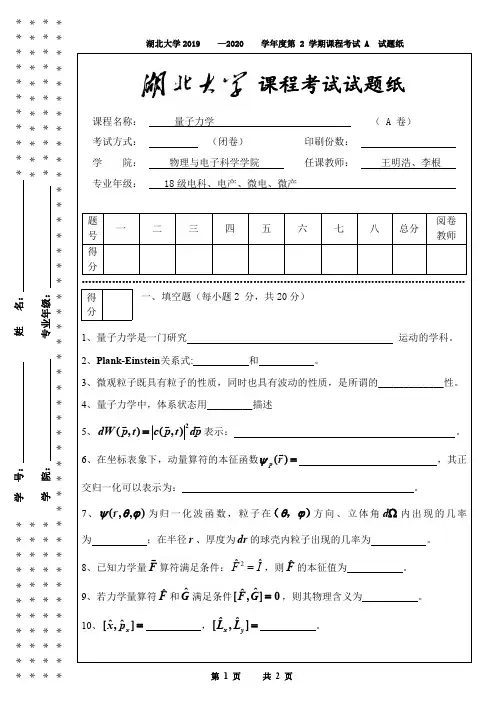 湖北大学2019 —2020 学年度第 2 学期课程考试 A 试题纸
湖北大学 课程考试试题纸
课程名称: 量子力学 ( A 卷)
考试方式: (闭卷) 印刷份数:
学 院: 物理与电子科学学院 任课教师: 王明浩、李根
专业年级: 18级电科、电产、微电、微产
题号 一 二 三 四 五 六 七 八 总分 阅卷教师
得分
得分
一、填空题(每小题2 分,共20分)
1、量子力学是一门研究 运动的学科。
2、Plank-Einstein关系式: 和 。
3、微观粒子既具有粒子的性质,同时也具有波动的性质,是所谓的 性。
4、量子力学中,体系状态用 描述
5、dW(p⃗,t)=|c(p⃗,t)|²dp⃗ 表示: 。
6、在坐标表象下,动量算符的本征函数ψ_p⃗(r⃗)= ,其正
交归一化可以表示为: 。
7、ψ(r,θ,φ)为归一化波函数,粒子在(θ,φ)方向、立体角dΩ内出现的几率
为 ;在半径r、厚度为dr的球壳内粒子出现的几率为 。
8、已知力学量F̂算符满足条件:F̂²=Î,则F̂的本征值为 。
9、若力学量算符F̂和Ĝ满足条件[F̂,Ĝ]=0,则其物理含义为 。
10、[x̂,p̂_x]= ,[L̂_x,L̂_y]= 。
第 1 页 共 2 页
学 号: 姓 名:
学 院: 专业年级: